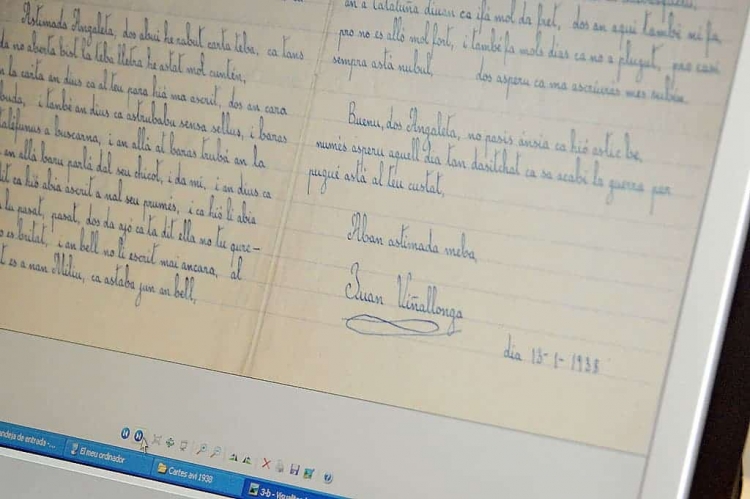 Astimada Angaleta, dos abui he rabut carta teba, ca tans
da no aberta bist la teba lletra he astat mol cuntén,
n la carta an dius ca al teu para hiá ma ascrit, dos an cara
buda, i també an dius ca astrubabu sensa sellus, i baras
talèfunus a buscarna, i an allá at baras trubá an la
an allá baru parlá dal seu chicot, i da mi, i an dius ca
dit ca hió abia ascrit a nal seu prumés, i ca hió li abia
la pasat, pasat, dos da ajó ca ta dit ella no tu gure-
o es britat, i an bell no li escrit mai ancara, al
t es a nan Miliu, ca astaba jun an bell,
an a Cataluña diuan ca ifá mol da fret, dos an aqui també mi fa
pro no es alló mol fort, i també fa mols dias ca no a plugut, pro casi
sempra astá nubul, dos asperu ca ma ascriurás mes subén.
Buenu, dos Angaleta, no pasis ánsia ca hió astic be,
numés asperu aquell dia tan dasitchat ca sa acabi la guerra par
pugué astá al teu custat,
Aban astimada meba,
Juan Viñallonga
dia 13-1-1938
andeja de entrada -...
El meu ordinador
Cartes avi 1938
3-b - Visualitza